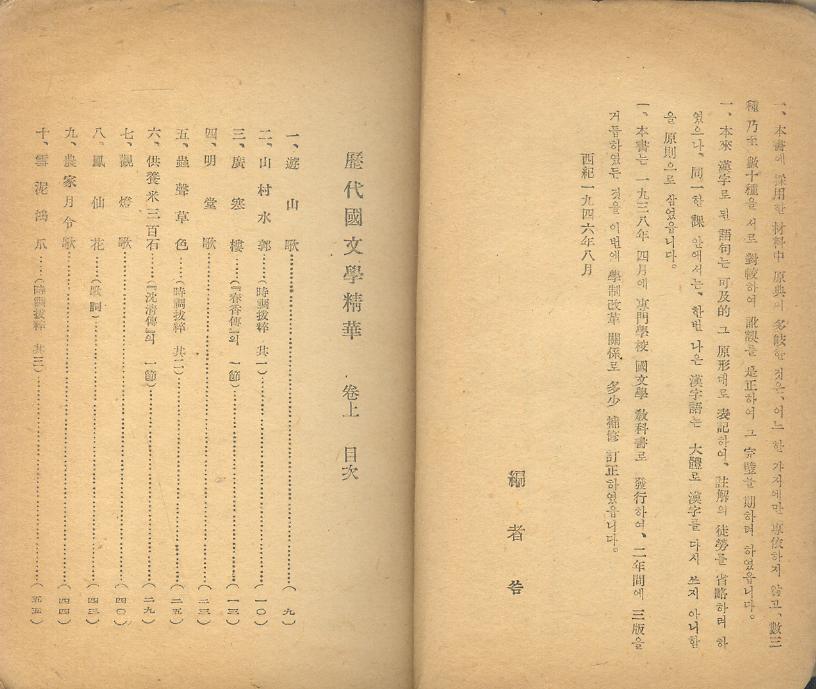 一、本書에 採用한 材料中 原典이 多岐한 것은, 어느 한 가지에만 專依하지 않고, 數三
種乃至 數十種을 서로 對較하여 訛誤를 是正하여 그 完璧을 期하려 하였읍니다.
一、本來 漢字로 된 語句는 可及的 그 原形대로 表記하여, 註解의 徒勞를 省略하려 하
였으나, 同一한 課 안에서는, 한번 나온 漢字語는 大體로 漢字를 다시 쓰지 아니함
을 原則으로 삼었읍니다.
一、本書는 一九三八年 四月에 專門學校 國文學 敎科書로 發行하여, 二年間에 三版을
거듭하였든 것을 이번에 學制改革 關係로 多少 補修 訂正하였읍니다.
西紀一九四六年八月
編者 告
歷代國文學精華 卷上 目次
一、遊山歌……(九)
二、山村水郭……(時調拔粹 其一)……(一〇)
三、廣寒樓……(『春香傳』의 一節)……(一三)
四、明堂歌……(二三)
五、蟲聲草色……(時調拔粹 其二)……(二五)
六、供養米三百石……(『沈淸傳』의 一節)……(二九)
七、觀燈歌……(四〇)
八、鳳仙花……(歌詞)……(四三)
九、農家月令歌……(四四)
十、雪泥鴻爪……(時調拔粹 其三)……(五五)